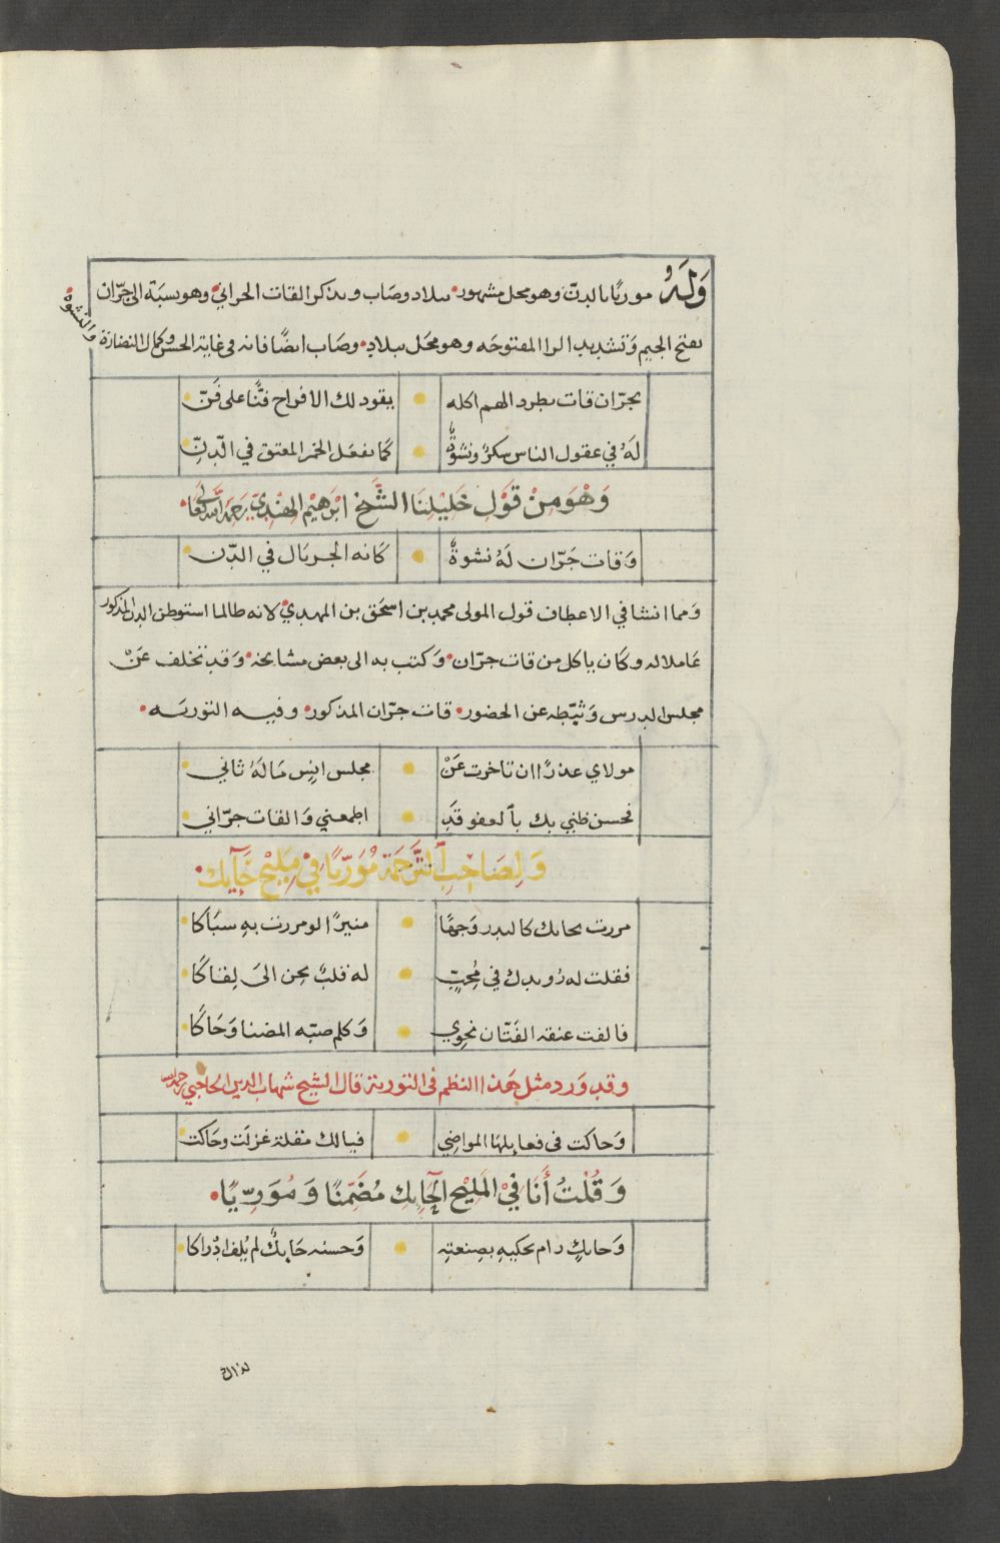 وَلَهُ موريًا بالدنّ وهو محل مشهور ببلاد وصاب ويذكر القات الجراني وهو نسبة الى جرّان
بفتح الجيم وَتشديد الرا المفتوحَه وهو محَل ببلاد وصَاب ايضًا فانه في غاية الحسن وكمال النضارة والنشوة
بجرّان قات يطرد الهم اكله يقود لك الافراح فنًّا على فَنّ
لَهُ في عقول الناس سكرٌ ونشوةٌ كمَا يفعَل الخمر المعتق في الّدنِّ
وَهْوَ مِنْ قَوْلِ خَلِيْلِنَا الشَّيْخ ابْرَهِيْم الهِنْدِيّ رَحِمَهُ اللهُ تَعَالى
وَقات جَرّان لَهُ نشوةٌ كَانه الجريَال في الدّن
وَمما انشا في الاعطاف قول المولى محمد بن اسحَق بن المهدي لانه طالما استوطن الدن المذكور
عَاملا له وكَان ياكل من قات جرّان وَكتب به الى بعض مشايخه وَقد تخلف عَنْ
مجلس الدرس وَثبّطه عن الحضور قات جرّان المذكور وفيه التوريَه
مولاي عذرًا ان تاخرت عَنْ مجلس انِس مَا لَهُ ثاني
فحسن ظني بك بالعفو قَدِ اطمعني وَالقات جرّاني
وَلِصَاحِبِ التَّرجَمَة مُوَرِّيًا فِيْ مَلِيْح حَآيك
مررت بحايك كالبدر وَجهًا منيرًا لو مررت به سبَاكا
فقلت له رُويدك في مُحِبٍّ له قلبٌ يحن الىَ لِقاكَا
فالفت عنقه الفَتّان نحوي وَكلم صبّه المضنا وَحَاكَا
وقد وَرد مثل هَذا النظم في التورية قال الشيخ شهاب الدين الحاجبي رحمه الله
وَحاكت في فعايلهَا المواضِي فيا لك مقلة غزلَت وحَاكت
وَقُلْتُ أَنَا فِيْ المَلِيْح الحَآيك مُضَمِّنًا وَمُوَرِّيًا
وَحايكٍ رام يحكيهِ بصِنعتِه وَحسنه حَايكٌ لم يُلف ادْراكا